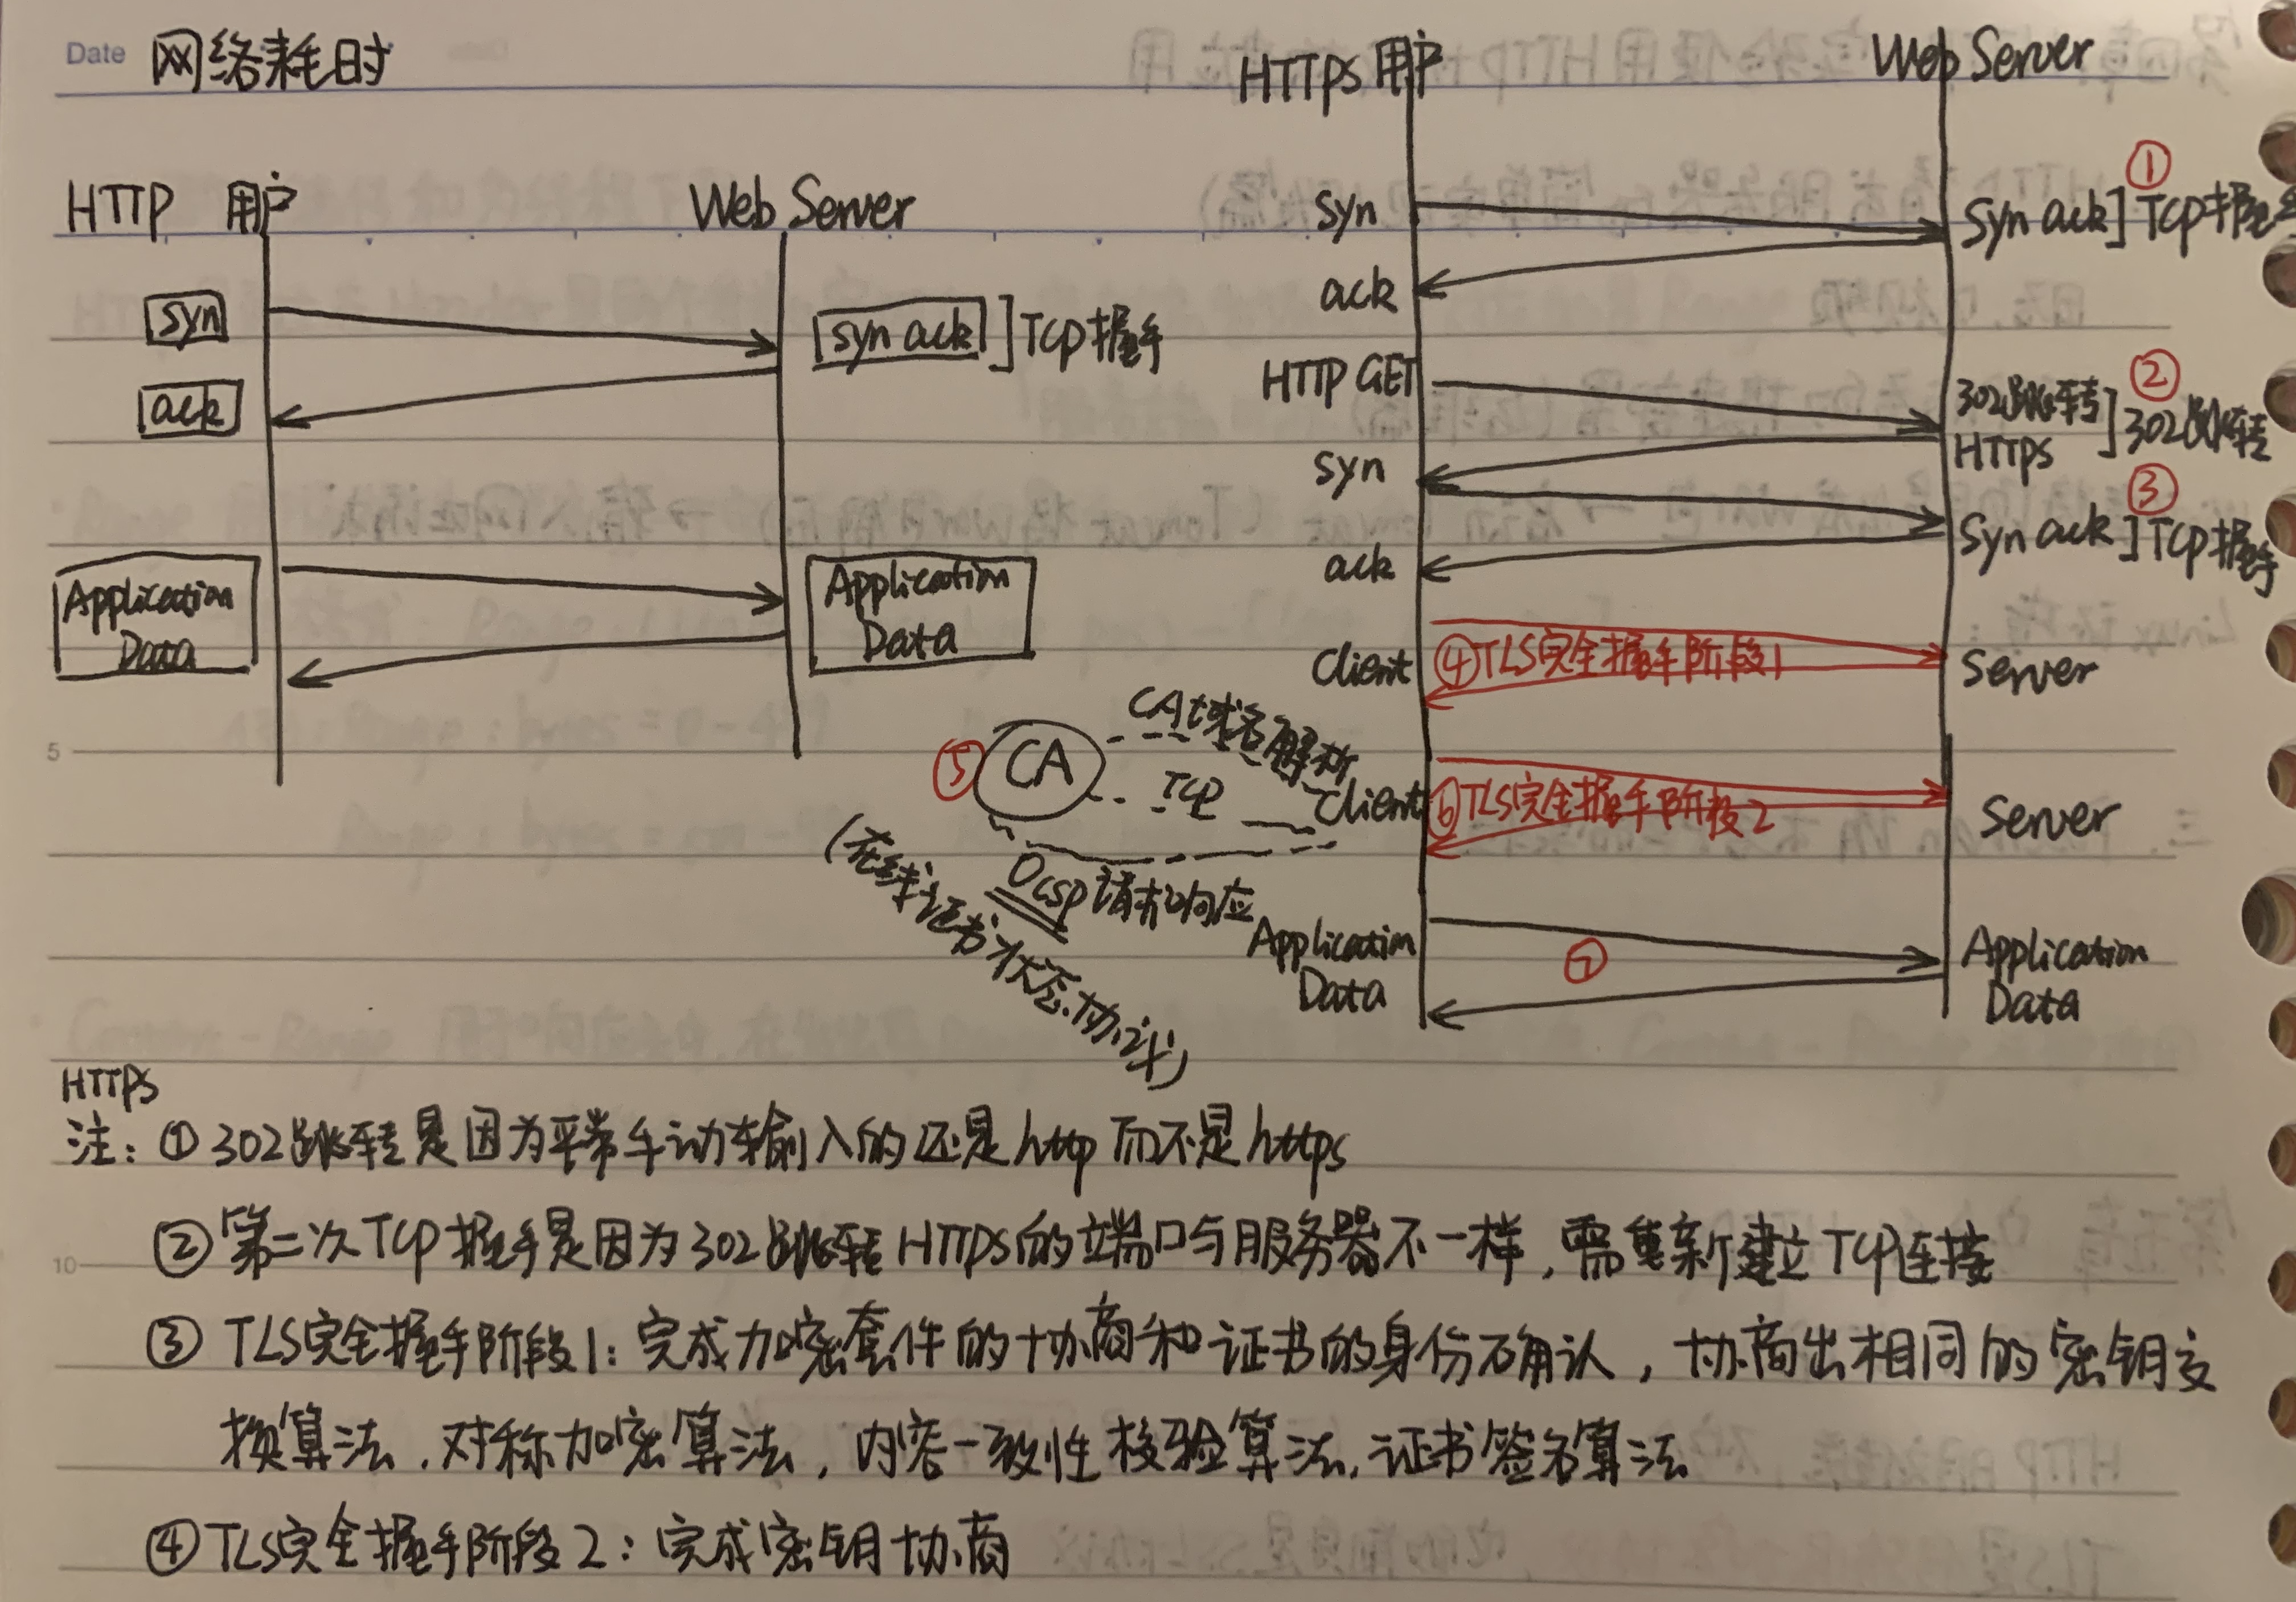 Date 网络耗时
HTTP 用户
Web Server
syn
syn ack ] TCP握手
ack
Application
Data
Application
Data
HTTPS 用户
Web Server
①
syn
syn ack ] TCP握手
ack
②
HTTP GET
302跳转
HTTPS
] 302跳转
③
syn
syn ack ] TCP握手
ack
Client
④TLS完全握手阶段1
Server
⑤
CA
CA域名解析
TCP
Client
⑥TLS完全握手阶段2
Server
Ocsp请求响应
(在线证书状态协议)
Application
Data
⑦
Application
Data
5
HTTPS
注: ① 302跳转是因为平常手动输入的还是http而不是https
② 第二次TCP握手是因为302跳转HTTPS的端口与服务器不一样,需重新建立TCP连接
10
③ TLS完全握手阶段1:完成加密套件的协商和证书的身份确认,协商出相同的密钥交
换算法,对称加密算法,内容一致性校验算法,证书签名算法
④ TLS完全握手阶段2:完成密钥协商